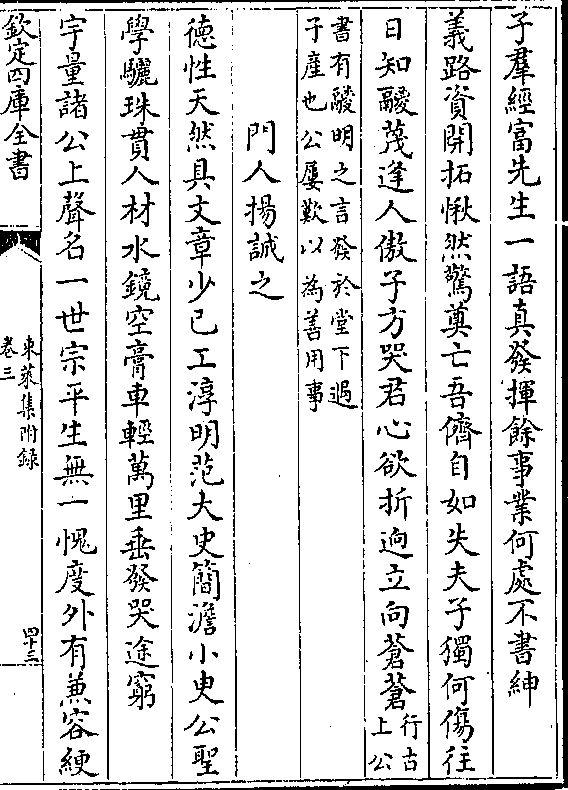 子羣經富先生一語真發揮餘事業何處不書紳
義路資開拓愀然驚奠亡吾儕自如失夫子獨何傷往
日知鬷蔑逢人傲子方哭君心欲折迥立向蒼蒼行古上公
書有鬷明之言發於堂下遇
子産也公屢歎以為善用事
門人楊誠之
徳性天然具文章少已工淳明范大史簡澹小史公聖
學驪珠貫人材水鏡空膏車輕萬里垂發哭途窮
宇量諸公上聲名一世宗平生無一愧度外有兼容綆
欽定四庫全書
東萊集附録
卷三
四十三